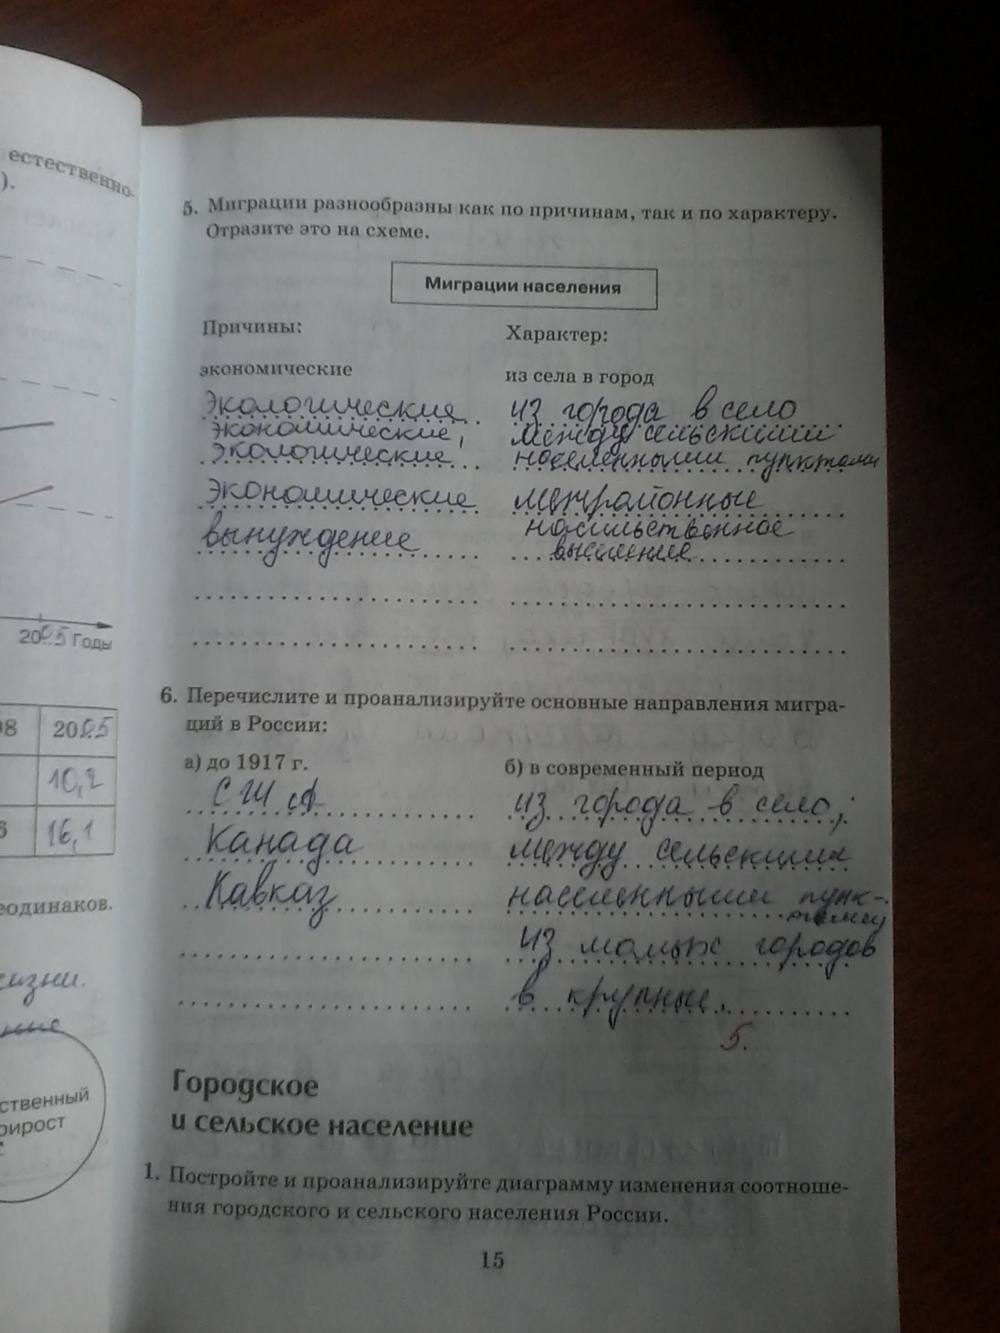 естественно-
).
2005 Годы
98
2005
10,2
6
16,1
еодинаков.
жизни.
ственный
рирост
5. Миграции разнообразны как по причинам, так и по характеру.
Отразите это на схеме.
Миграции населения
Причины:
Характер:
экономические
из села в город
Экологические
из города в село
экономические,
между сельскими
экологические
населенными пунктами
экономические
межрайонные
вынуждение
насильственное
выселение
6. Перечислите и проанализируйте основные направления мигра-
ций в России:
а) до 1917 г.
б) в современный период
США
из города в село;
Канада
между сельскими
Кавказ
населенными пунк-
тами
из малых городов
в крупные.
5.
Городское
и сельское население
1. Постройте и проанализируйте диаграмму изменения соотноше-
ния городского и сельского населения России.
15